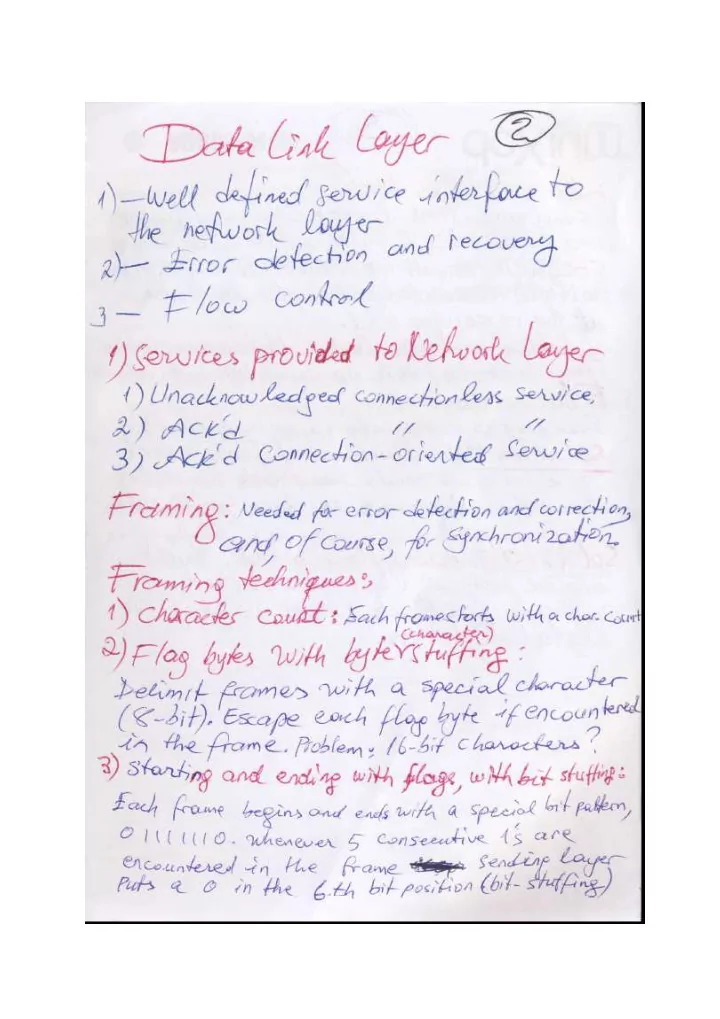 Data Link Layer 2
1) – Well defined service interface to
the network layer
2) – Error detection and recovery
3 – Flow control
1) Services provided to Network Layer
1) Unacknowledged connectionless service.
2) Ack'd " "
3) Ack'd Connection-oriented Service
Framing: Needed for error detection and correction,
and, of course, for synchronization.
Framing techniques:
1) Character count: Each frame starts with a char. count
(character)
2) Flag bytes with byte stuffing:
Delimit frames with a special character
(8-bit). Escape each flag byte if encountered
in the frame. Problem: 16-bit characters?
3) Starting and ending with flags, with bit stuffing:
Each frame begins and ends with a special bit pattern,
01111110. Whenever 5 consecutive 1's are
encountered in the frame sending layer
puts a 0 in the 6.th bit position (bit-stuffing)